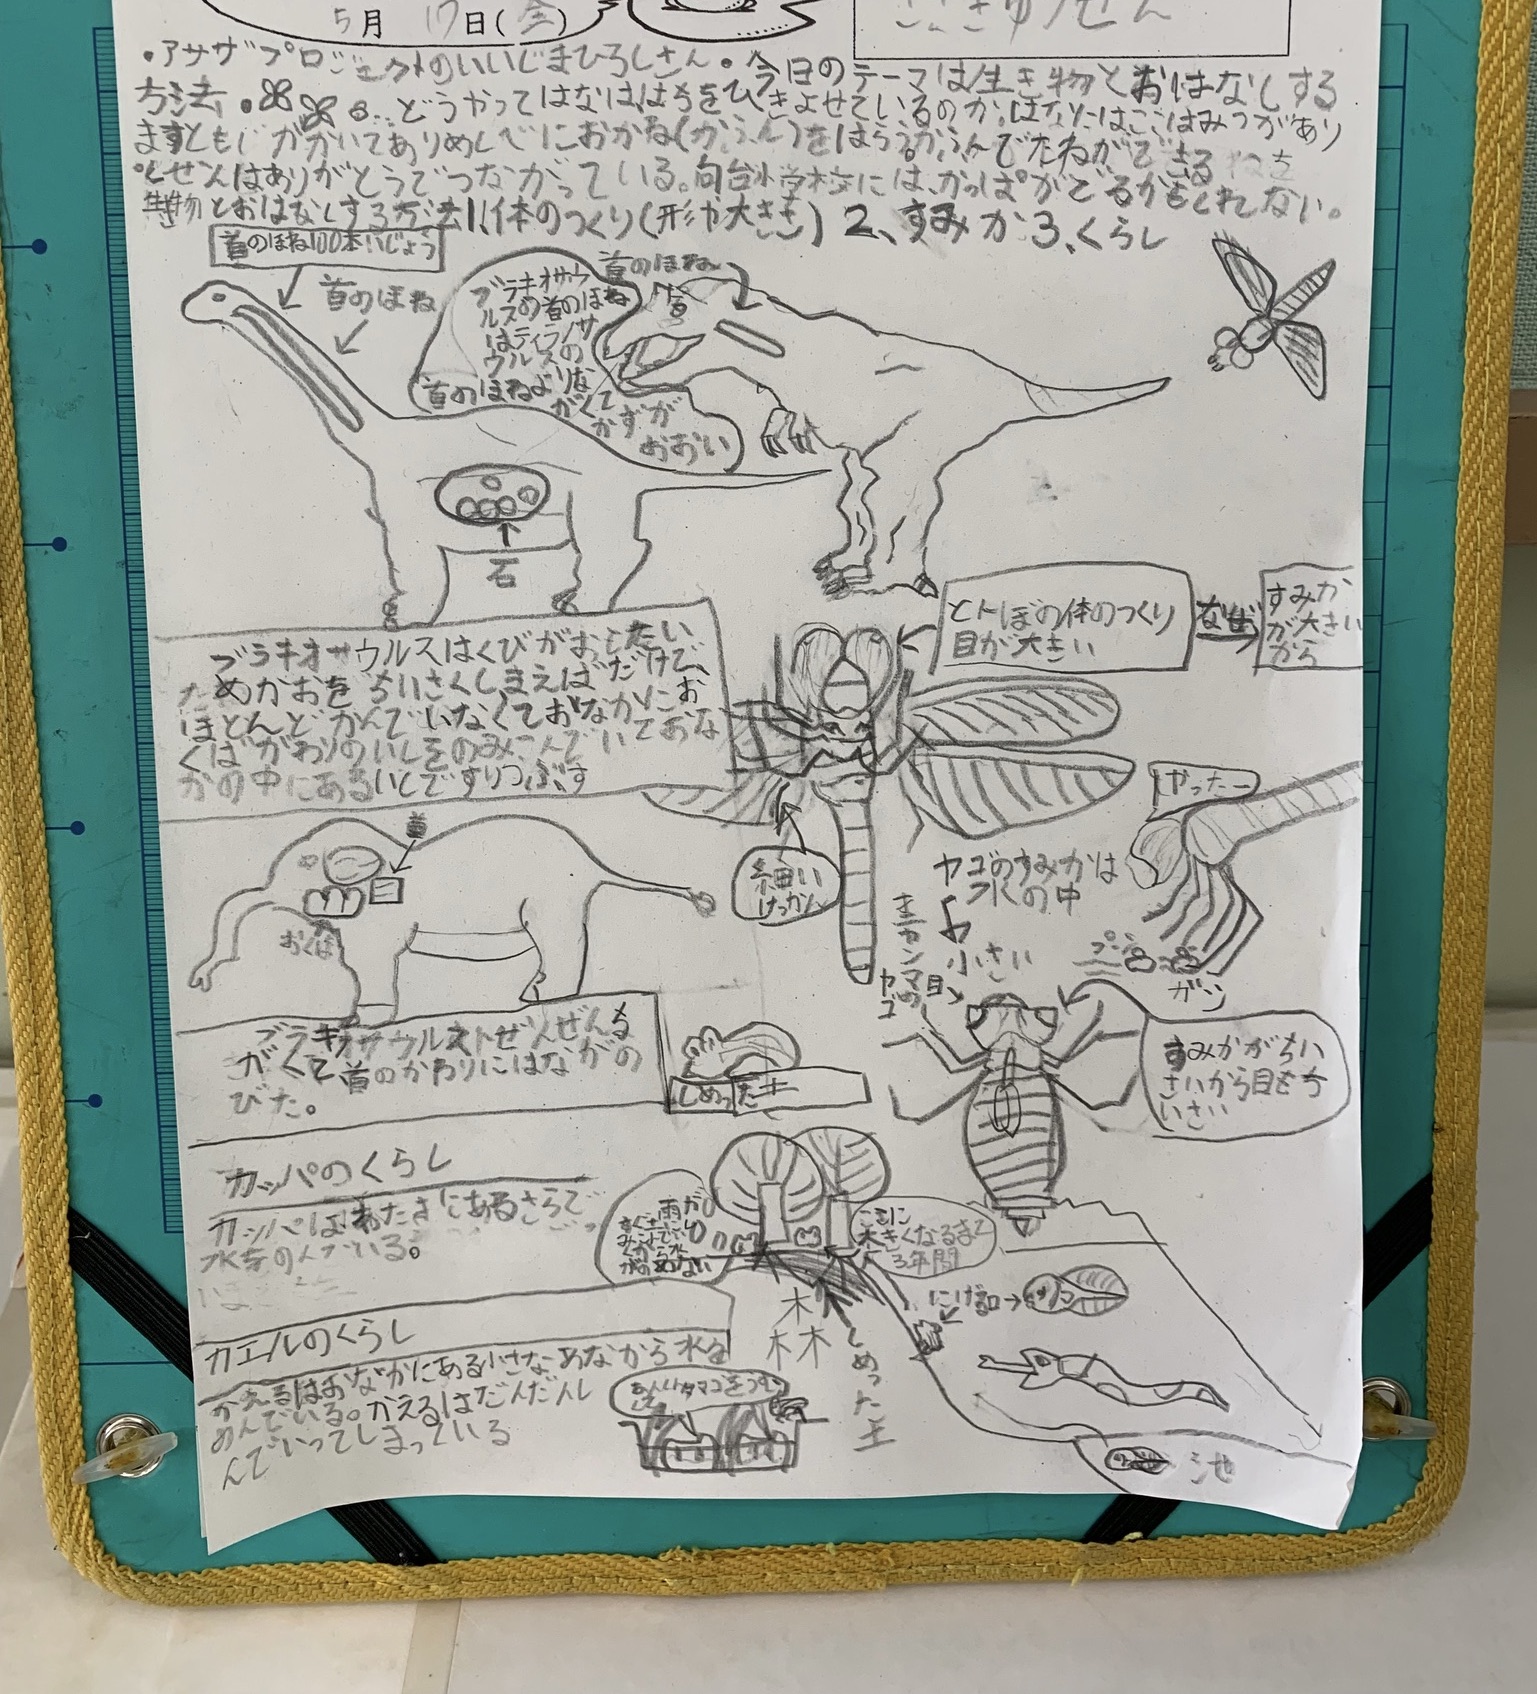 5月17日(金)
・アサザプロジェクトのいいじまひろしさん。今日のテーマは生き物とおはなしする
方法。どうやってはなははちをひきよせているのか、はなにはここはみつがあり
ますともじがかいてありめしべにおかね(かふん)をはらう。かふんでたねができる
しぜんはありがとうでつながっている。向台小学校には、かっぱがでるかもしれない。
生き物とおはなしする方法1、体のつくり(形や大きさ)2、すみか3、くらし
首のほね100本いじょう
首のほね
ブラキオサウ
ルスの首のほね
はティラノサ
ウルスの
首のほねよりな
がくて
かずが
おおい
首のほね
石
とんぼの体のつくり
目が大きい
なぜ
すみか
が大きい
から
ブラキオサウルスはくびがおもたい
ためかおをちいさくしまえばだけで、
ほとんどかんでいなくておなかにお
くばがわりのいしをのみこんでいておな
かの中にあるいしですりつぶす
細い
けっかん
やったー
ヤゴのすみかは
水の中
小さい
目
ヤゴ
ガシ
首
おくば
すみかがちい
さいから目もち
いさい
ブラキオサウルストぜんぜんち
がくて首のかわりにはながの
びた。
しめった土
カッパのくらし
カッパはあたまにあるさらで
水をのんでいる。
雨が
すぐ土に
しみこんでい
くから水
がのめない
ここに
大きくなるまで
3年間
にげ道
カエルのくらし
かえるはおなかにある小さなあなから水を
のんでいる。かえるはだんだんし
んでいってしまっている
木
木木
しめった土
あんしん
タマゴをうむ
池